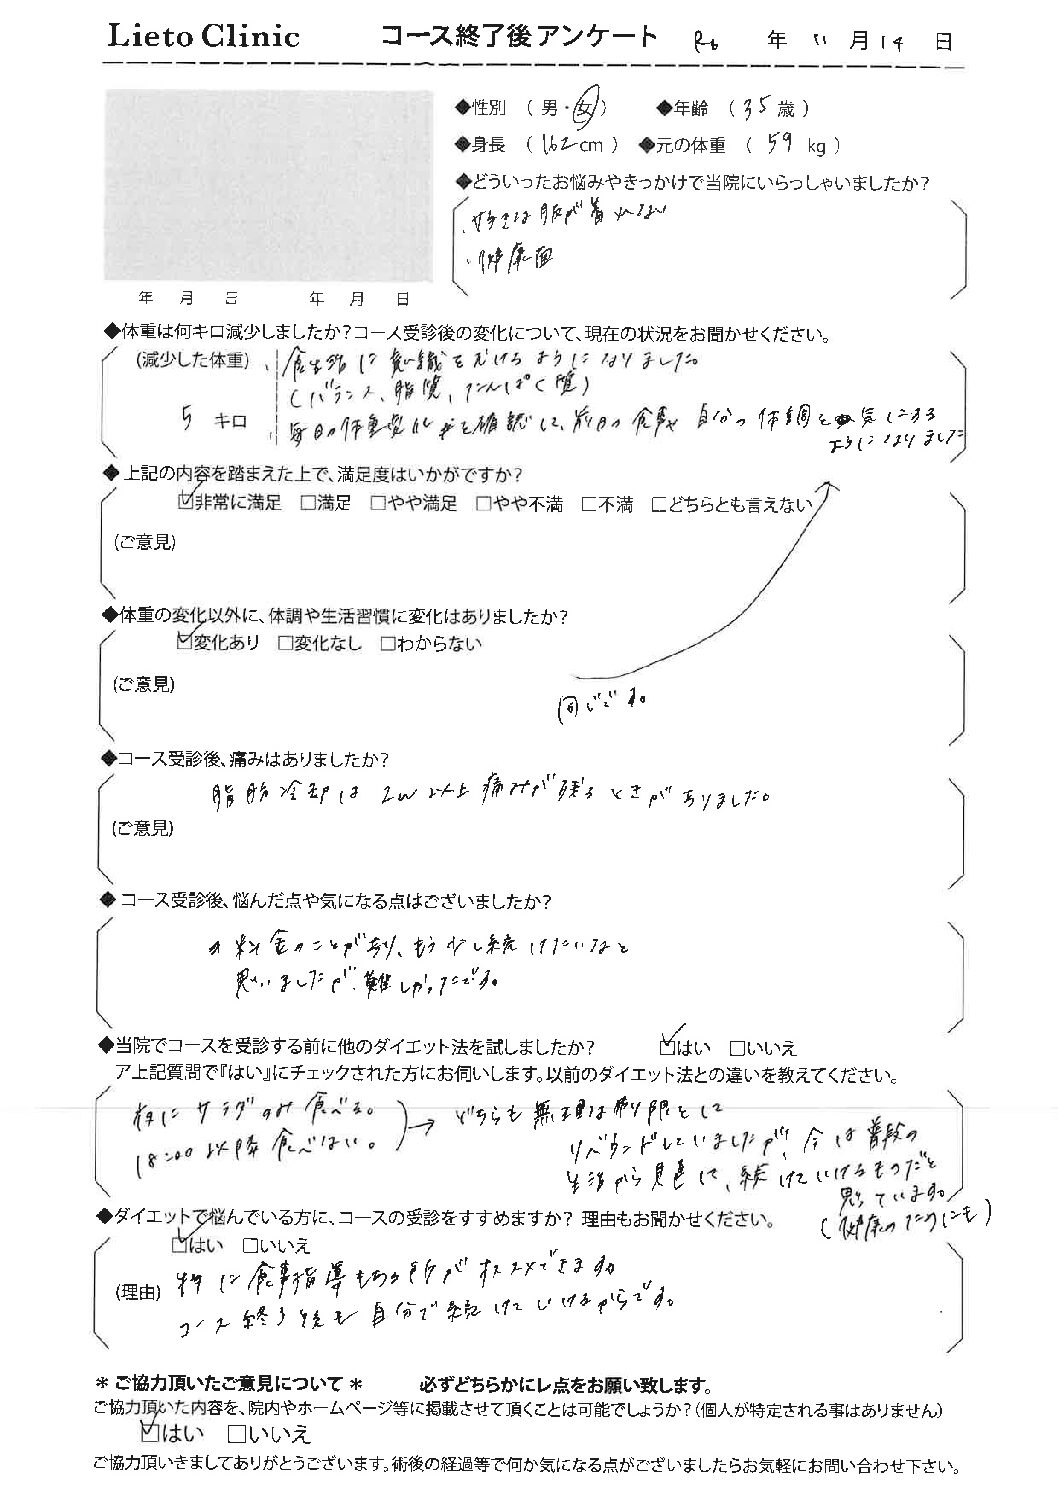 Lieto Clinic コース終了後アンケート R6 年 11 月 14 日
◆性別 （ 男・女 ） ◆年齢 （ 35 歳 ）
◆身長 （ 162 cm ） ◆元の体重 （ 59 kg ）
◆どういったお悩みやきっかけで当院にいらっしゃいましたか？
・好きな服が着れない
・健康面
年 月 日 年 月 日
◆体重は何キロ減少しましたか？コース受診後の変化について、現在の状況をお聞かせください。
(減少した体重) ・食生活に意識をむけるようになりました。
(バランス、脂質、たんぱく質)
5 キロ ・毎日の体重変化を確認し、前日の食事や 自分の体調を気にする
ようになりました
◆ 上記の内容を踏まえた上で、満足度はいかがですか？
☑非常に満足 □満足 □やや満足 □やや不満 □不満 □どちらとも言えない
(ご意見)
◆体重の変化以外に、体調や生活習慣に変化はありましたか？
☑変化あり □変化なし □わからない
(ご意見)
同じです。
◆コース受診後、痛みはありましたか？
脂肪冷却は2w以上痛みが残るときがありました。
(ご意見)
◆ コース受診後、悩んだ点や気になる点はございましたか？
料金のことがあり、もう少し続けたいなと
思いましたが、難しかったです。
◆当院でコースを受診する前に他のダイエット法を試しましたか？ ☑はい □いいえ
ア上記質問で『はい』にチェックされた方にお伺いします。以前のダイエット法との違いを教えてください。
夜にサラダのみ食べる。 → どちらも無理な制限をして
18:00以降食べない。 リバウンドしていましたが、今は普段の
生活から見直して、続けていけるものだと
思っています。
(健康のためにも)
◆ダイエットで悩んでいる方に、コースの受診をすすめますか？ 理由もお聞かせください。
☑はい □いいえ
(理由) 特に食事指導もある所がオススメできます。
コース終了後も自分で続けていけるからです。
＊ ご協力頂いたご意見について ＊ 必ずどちらかにレ点をお願い致します。
ご協力頂いた内容を、院内やホームページ等に掲載させて頂くことは可能でしょうか？（個人が特定される事はありません）
☑はい □いいえ
ご協力頂いきましてありがとうございます。術後の経過等で何か気になる点がございましたらお気軽にお問い合わせ下さい。